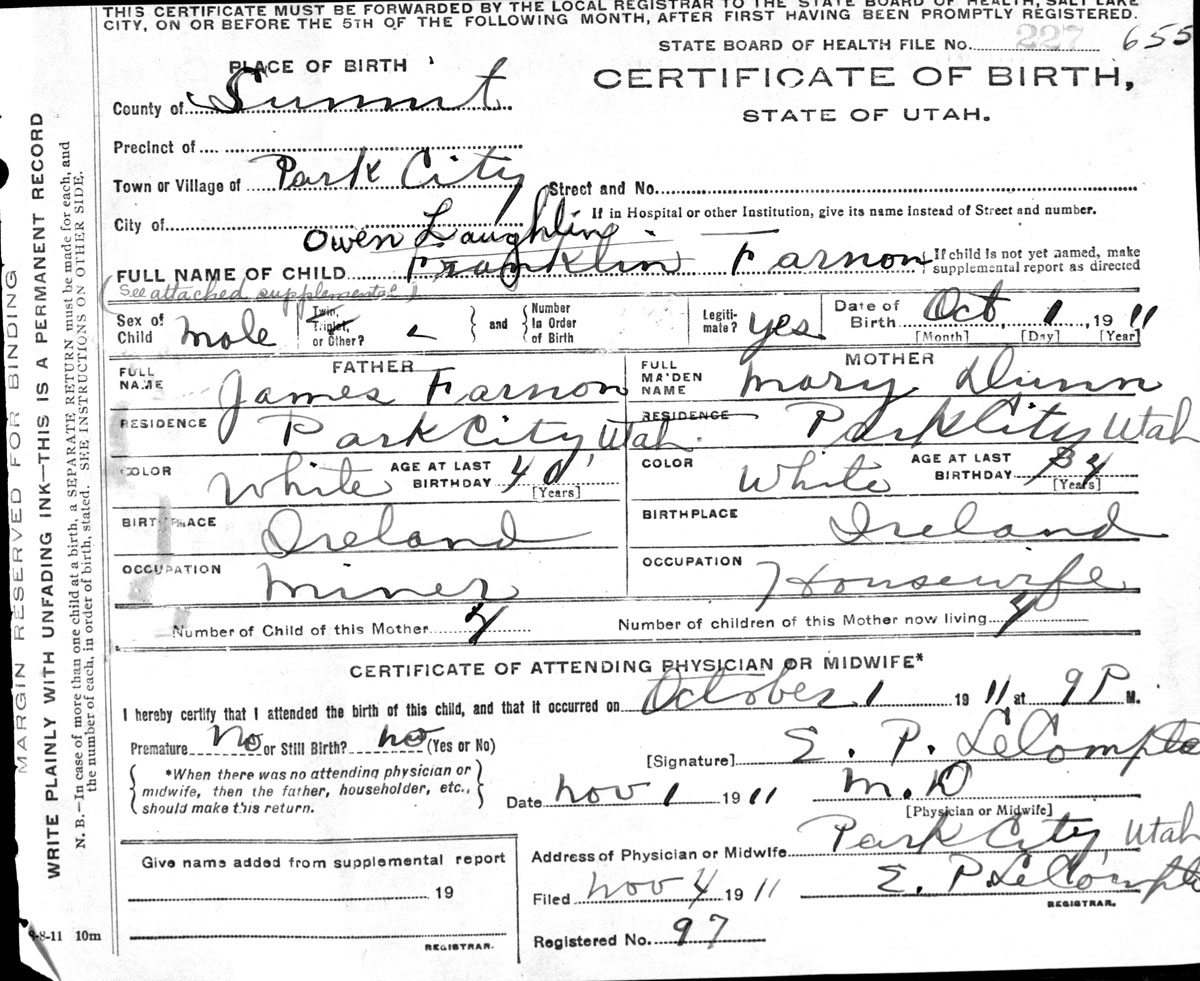 THIS CERTIFICATE MUST BE FORWARDED BY THE LOCAL REGISTRAR TO THE STATE BOARD OF HEALTH, SALT LAKE
CITY, ON OR BEFORE THE 5TH OF THE FOLLOWING MONTH, AFTER FIRST HAVING BEEN PROMPTLY REGISTERED.
STATE BOARD OF HEALTH FILE No. 227 655
PLACE OF BIRTH
CERTIFICATE OF BIRTH,
STATE OF UTAH.
County of Summit
Precinct of
Town or Village of Park City Street and No.
City of If in Hospital or other Institution, give its name instead of Street and number.
Owen Laughlin
FULL NAME OF CHILD Franklin Farnon If child is not yet named, make supplemental report as directed
(See attached supplemental)
Sex of Child male Twin, Triplet, or Other? and Number In Order of Birth Legiti-mate? yes Date of Birth Oct, 1, 1911
[Month] [Day] [Year]
FATHER MOTHER
FULL NAME James Farnon FULL MAIDEN NAME Mary Dunn
RESIDENCE Park City, Utah. RESIDENCE Park City, Utah
COLOR White AGE AT LAST BIRTHDAY 40 [Years] COLOR White AGE AT LAST BIRTHDAY 34 [Years]
BIRTHPLACE Ireland BIRTHPLACE Ireland
OCCUPATION Miner OCCUPATION Housewife
Number of Child of this Mother 4 Number of children of this Mother now living 4
CERTIFICATE OF ATTENDING PHYSICIAN OR MIDWIFE*
I hereby certify that I attended the birth of this child, and that it occurred on October 1 1911 at 9 P M.
Premature No or Still Birth? no (Yes or No)
[Signature] E. P. LeCompte
*When there was no attending physician or midwife, then the father, householder, etc., should make this return.
Date Nov 1 1911 M.D
[Physician or Midwife]
Address of Physician or Midwife Park City, Utah
Give name added from supplemental report
19
REGISTRAR.
Filed Nov 4 1911 E. P. LeCompte
REGISTRAR.
Registered No. 97
8-11 10m
MARGIN RESERVED FOR BINDING
WRITE PLAINLY WITH UNFADING INK—THIS IS A PERMANENT RECORD
N. B.—In case of more than one child at a birth, a SEPARATE RETURN must be made for each, and
the number of each, in order of birth, stated. SEE INSTRUCTIONS ON OTHER SIDE.